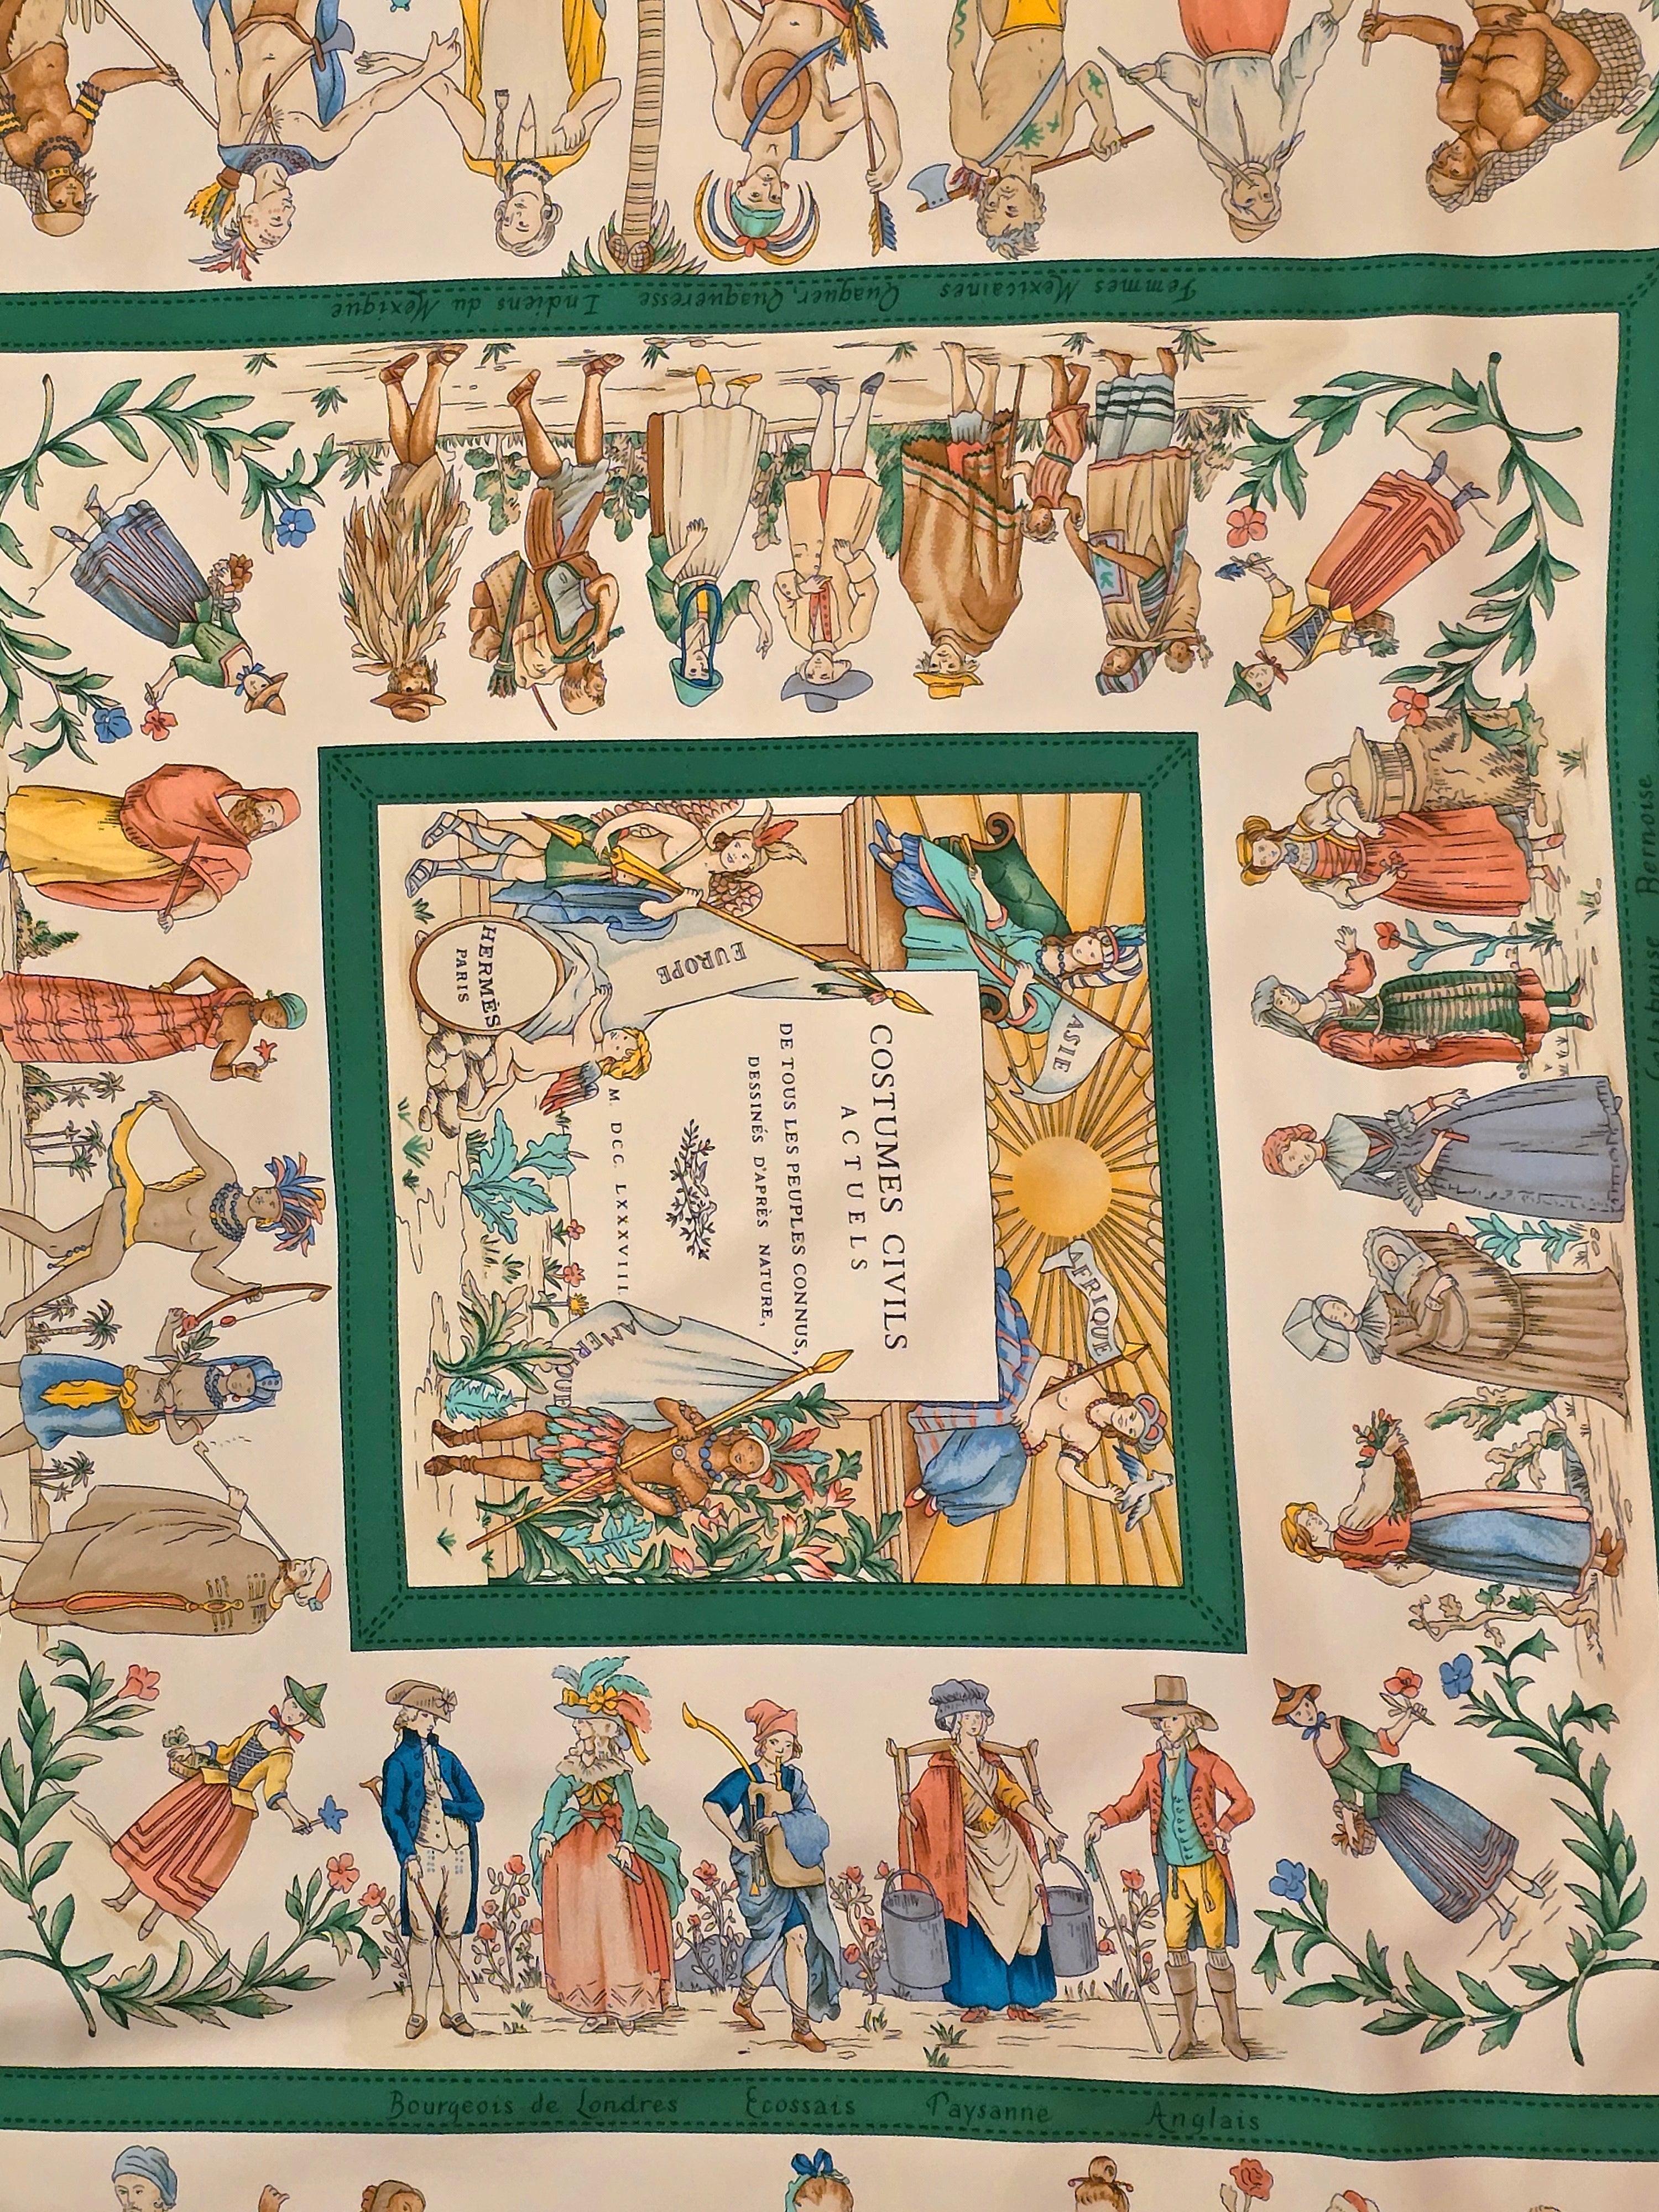 COSTUMES CIVILS
ACTUELS
DE TOUS LES PEUPLES CONNUS,
DESSINÉS D'APRÈS NATURE,
M. DCC. LXXXVIII.
EUROPE
ASIE
AFRIQUE
AMERIQUE
HERMÈS
PARIS
Femmes Mexicaines Quaquer, Quaqueresse Indiens du Mexique
Bernoise
Bourgeois de Londres Ecossais Paysanne Anglais